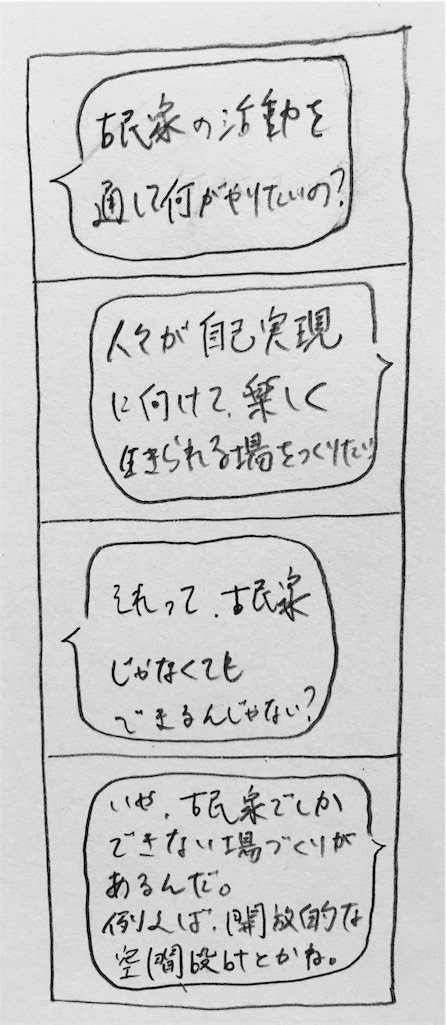 古民家の活動を
通して何がやりたいの?
人々が自己実現
に向けて、楽しく
生きられる場をつくりたい
それって、古民家
じゃなくても
できるんじゃない?
いや、古民家でしか
できない場づくりが
あるんだ。
例えば、開放的な
空間設計とかね。